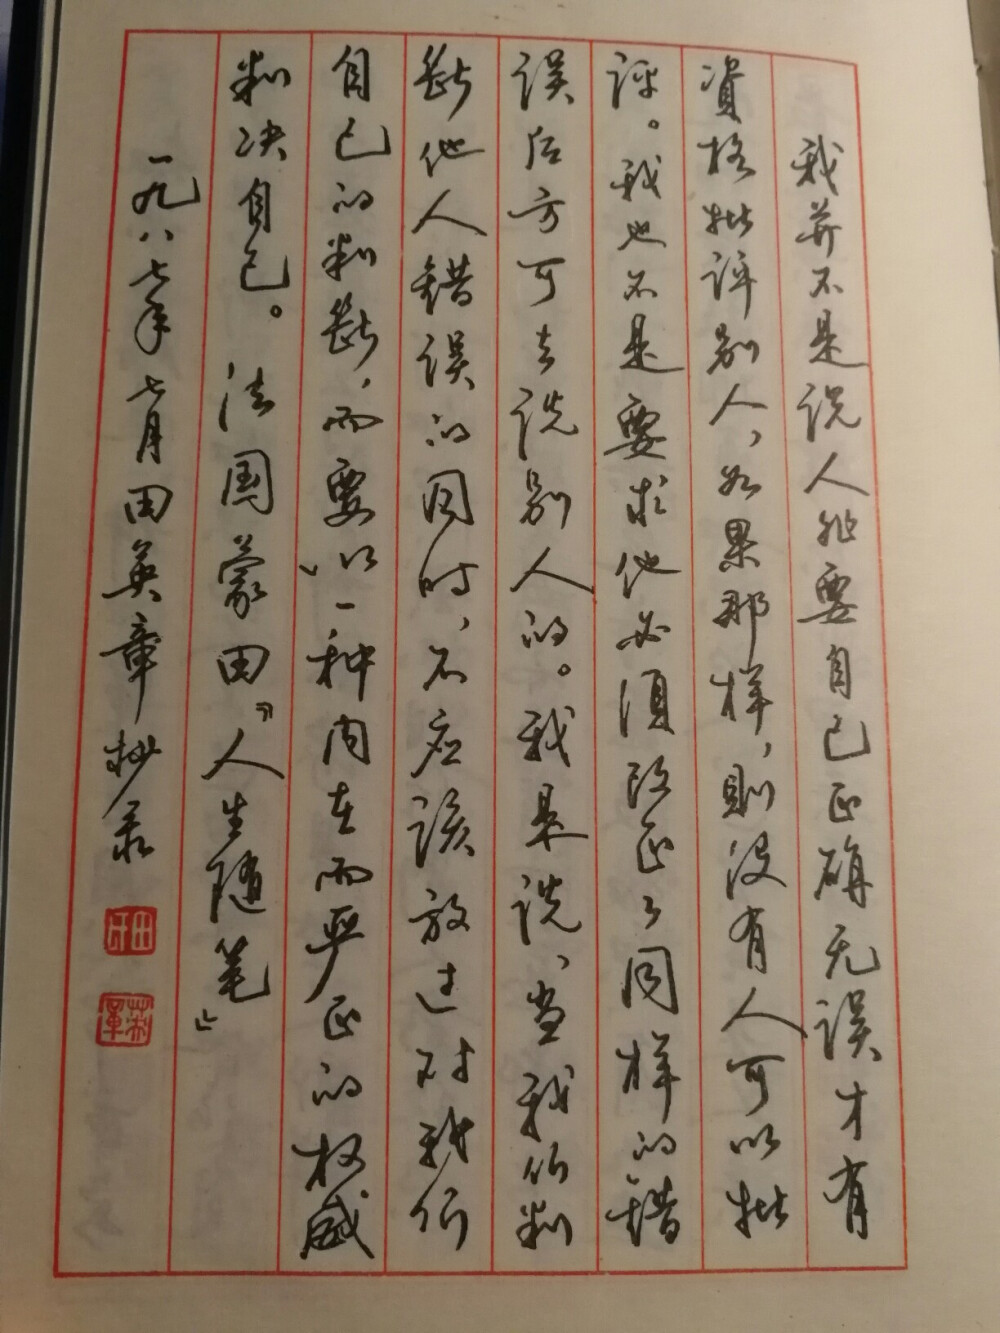 我并不是说人非要自己正确无误才有
资格批评别人，如果那样，则没有人可以批
评。我也不是要求他必须改正了同样的错
误后方可去说别人的。我是说、当我们判
断他人错误的同时，不应该放过对我们
自己的判断，而要以一种内在而严正的权威
判决自己。 法国蒙田《人生随笔》
一九八七年七月田英章抄录
田
英章